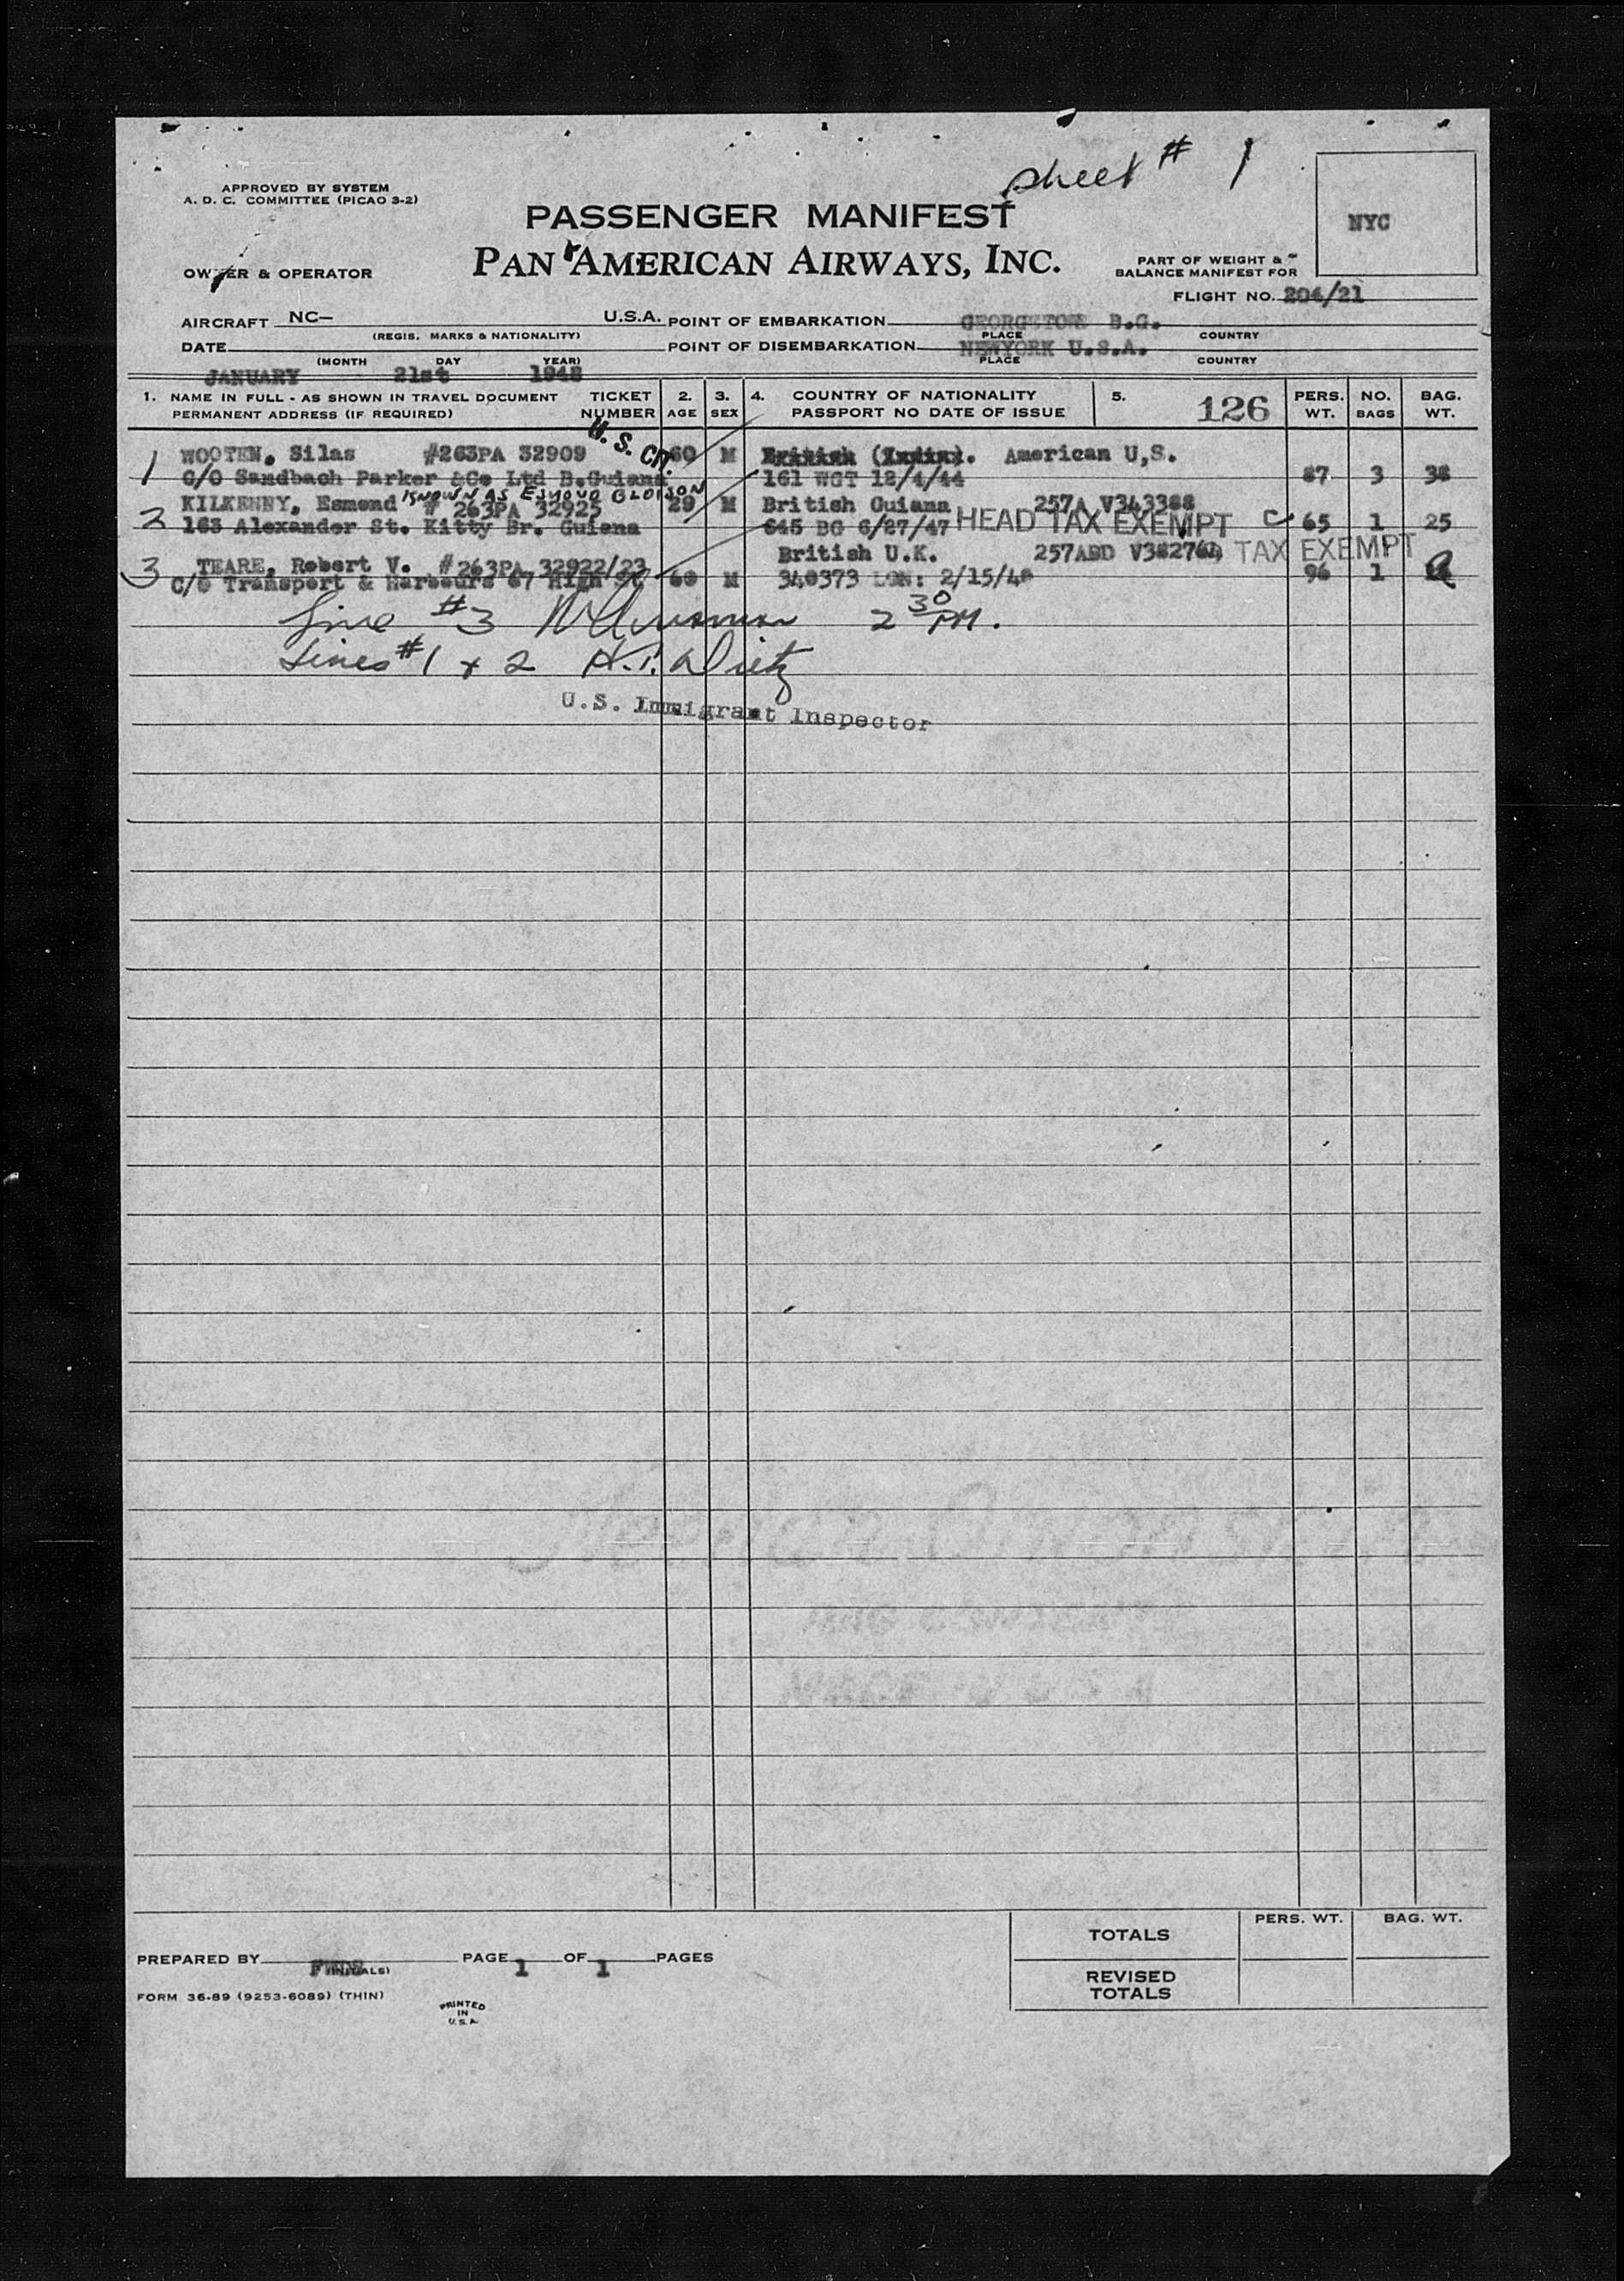 sheet # 1
APPROVED BY SYSTEM
A. D. C. COMMITTEE (PICAO 3-2)
PASSENGER MANIFEST
NYC
OWNER & OPERATOR
PAN AMERICAN AIRWAYS, INC.
PART OF WEIGHT &
BALANCE MANIFEST FOR
FLIGHT NO. 204/21
AIRCRAFT NC— U.S.A. POINT OF EMBARKATION GEORGETOWN B.G.
(REGIS. MARKS & NATIONALITY) PLACE COUNTRY
DATE POINT OF DISEMBARKATION NEWYORK U.S.A.
(MONTH DAY YEAR) PLACE COUNTRY
JANUARY 21st 1948
1. NAME IN FULL - AS SHOWN IN TRAVEL DOCUMENT TICKET 2. 3. 4. COUNTRY OF NATIONALITY 5. 126 PERS. NO. BAG.
PERMANENT ADDRESS (IF REQUIRED) NUMBER AGE SEX PASSPORT NO DATE OF ISSUE WT. BAGS WT.
1 WOOTEN, Silas #263PA 32909 U.S. Cit. 60 M British (India). American U,S.
C/O Sandbach Parker &Co Ltd B.Guiana 161 WGT 12/4/44 87 3 38
KNOWN AS ESMOND
KILKENNY, Esmond # 263PA 32925 29 M British Guiana 257A V343388
2 163 Alexander St. Kitty Br. Guiana 645 BG 6/27/47 HEAD TAX EXEMPT C 65 1 25
TEARE, Robert V. #263PA 32922/23 British U.K. 257ABD TAX EXEMPT
3 C/O Transport & Harbours 67 High St 60 M 340373 LON: 2/15/4 96 1
Line #3 2 30 PM.
Lines #1 + 2 H.I. Dietz
U.S. Immigrant Inspector
TOTALS PERS. WT. BAG. WT.
PREPARED BY (INITIALS) PAGE 1 OF 1 PAGES
REVISED
TOTALS
FORM 36-89 (9253-6089) (THIN)
PRINTED
IN
U.S.A.